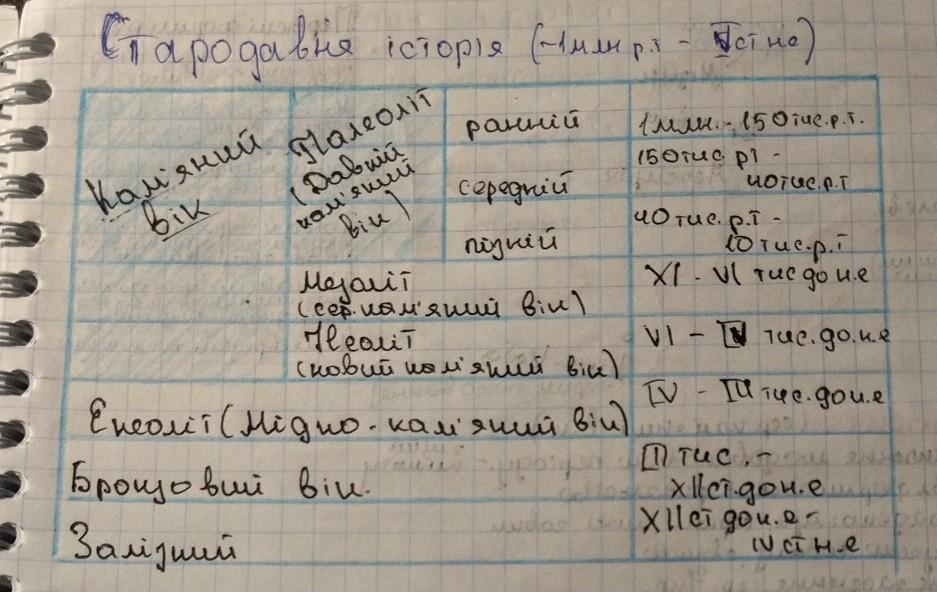 Стародавня історія (~1 млн р.т – V ст не)
Кам'яний
вік
Палеоліт
(Давній
кам'яний
вік)
ранній
1 млн. - 150 тис.р.т.
середній
150 тис рт -
40 тис.р.т
пізній
40 тис.р.т -
10 тис.р.т
Мезоліт
(сер.кам'яний вік)
XI - VI тис до н.е
Неоліт
(новий кам'яний вік)
VI – IV тис.до.н.е
Енеоліт (Мідно-кам'яний вік)
IV - III тис.до н.е
Бронзовий вік.
II тис. -
XII ст.до н.е
Залізний
XII ст до н.е -
IV ст н.е